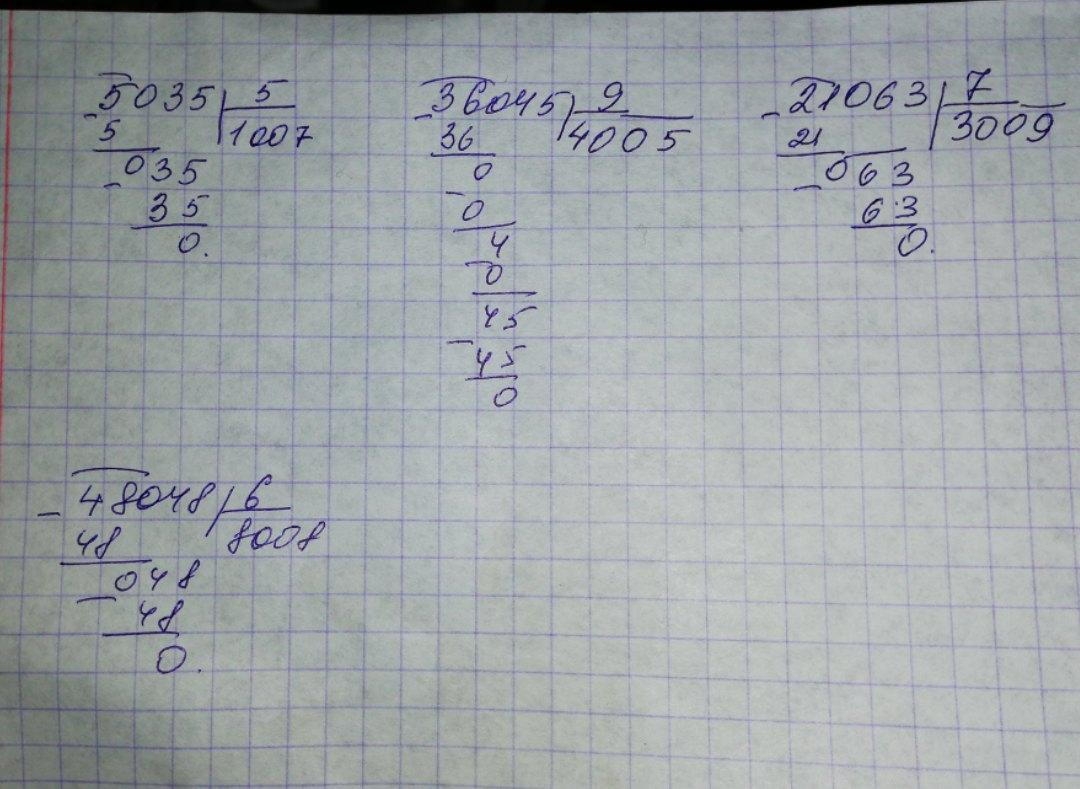 -5035 | 5
5 1007
-035
35
0.
-36045 | 9
36 4005
0
-
0
4
-
0
45
-
45
0
-21063 | 7
21 3009
-063
63
0.
-48048 | 6
48 8008
-048
48
0.